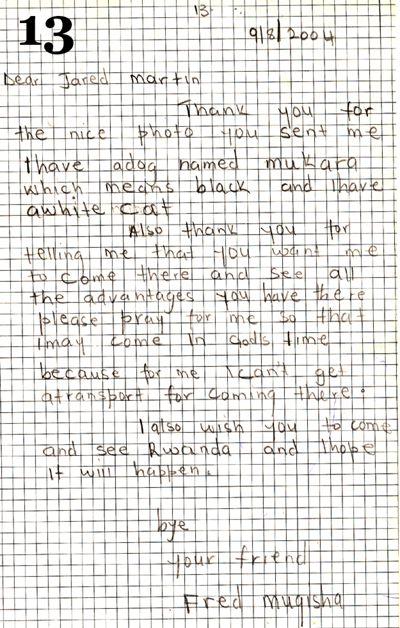 13
13
9/8/2004
Dear Jared martin
Thank you for
the nice photo you sent me
I have adog named mukara
which means black and Ihave
awhite cat
Also thank you for
telling me that you want me
to come there and see all
the advantages you have there
please pray for me so that
Imay come in Gods time
because for me Ican't get
atransport for coming there.
Ialso wish you to come
and see Rwanda and Ihope
it will happen.
bye
your friend
Fred mugisha